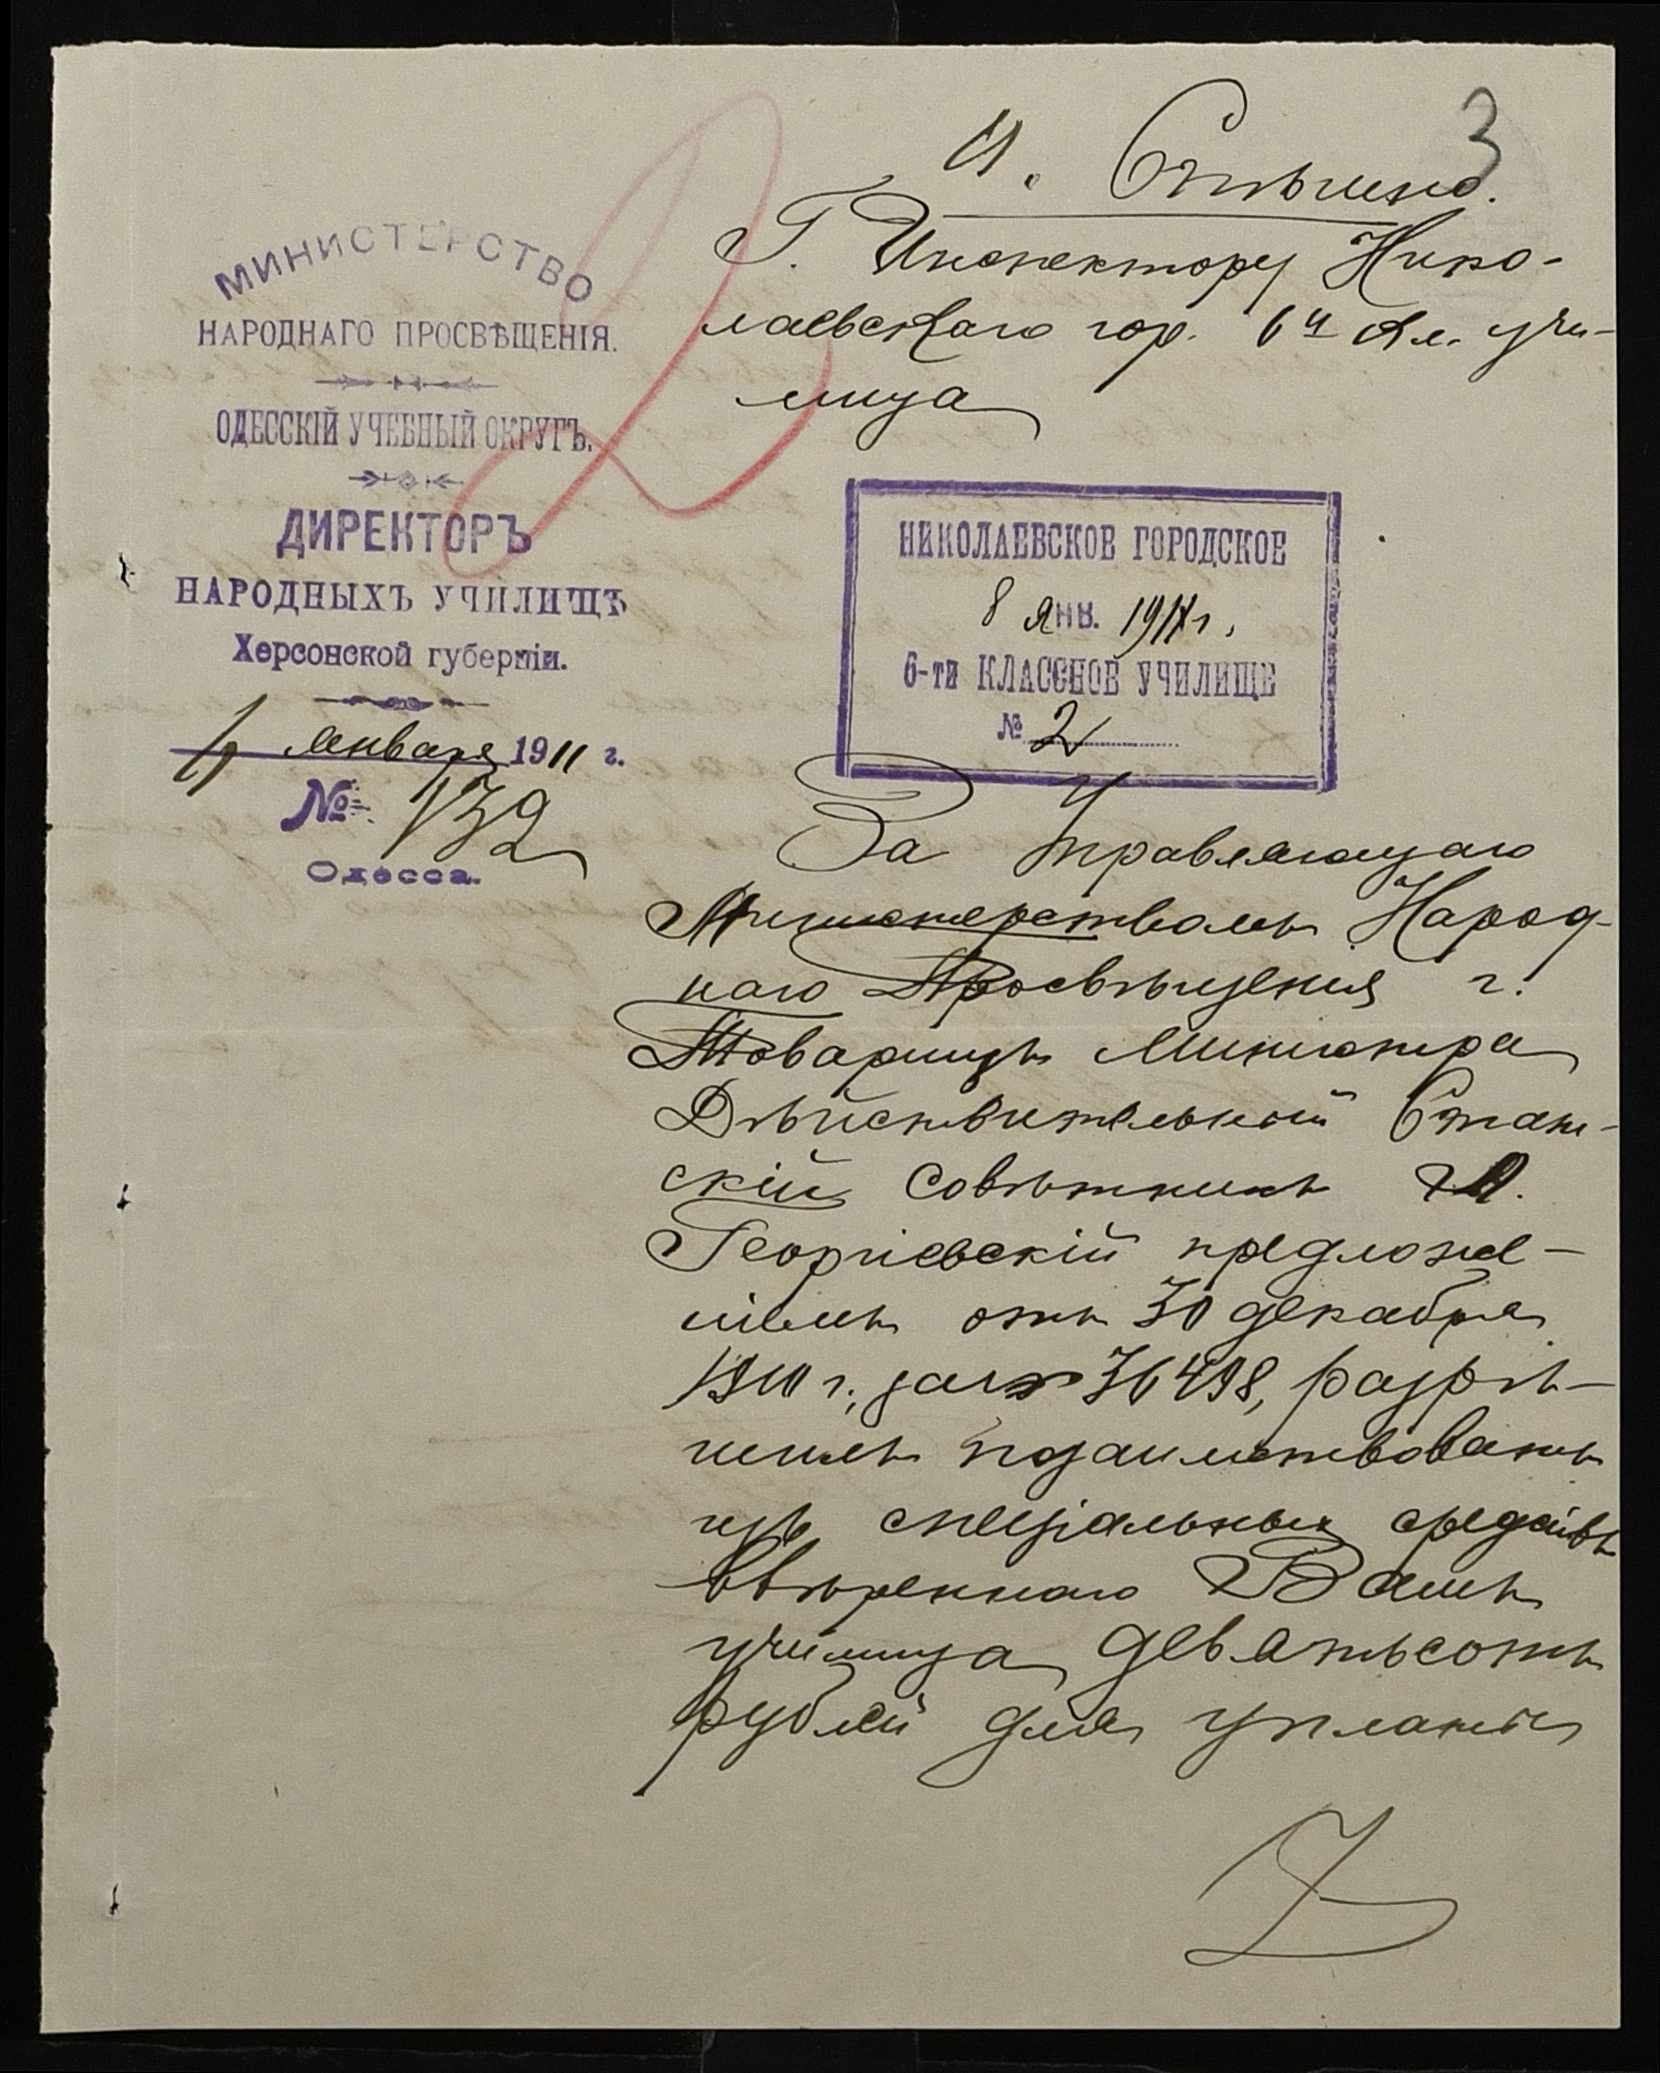 3
И. Спѣшно.
МИНИСТЕРСТВО
НАРОДНАГО ПРОСВѢЩЕНІЯ.
ОДЕССКІЙ УЧЕБНЫЙ ОКРУГЪ.
ДИРЕКТОРЪ
НАРОДНЫХЪ УЧИЛИЩЪ
Херсонской губерніи.
4 января 1911 г.
№ 132
Одесса.
Г. Инспектору Нико-
лаевскаго гор. 6 кл. учи-
лища
НИКОЛАЕВСКОЕ ГОРОДСКОЕ
8 ЯНВ. 1911 г.
6-ти КЛАССНОЕ УЧИЛИЩЕ
№ 2
За Управляющаго
Министерствомъ Народ-
наго Просвѣщенія г.
Товарищъ Министра
Дѣйствительный Стат-
скій Совѣтникъ Л.
Георгіевскій предложе-
ніемъ отъ 30 декабря
1910 г., за № 36498, разрѣ-
шилъ позаимствовать
изъ спеціальныхъ средствъ
ввѣреннаго Вамъ
училища девятьсотъ
рублей для уплаты